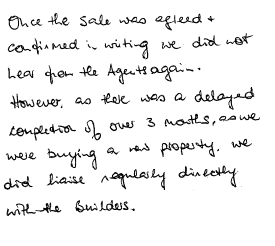 Once the sale was agreed +
confirmed in writing we did not
hear from the Agents again.
However, as there was a delayed
completion of over 3 months, as we
were buying a new property, we
did liaise regularly directly
with the Builders.